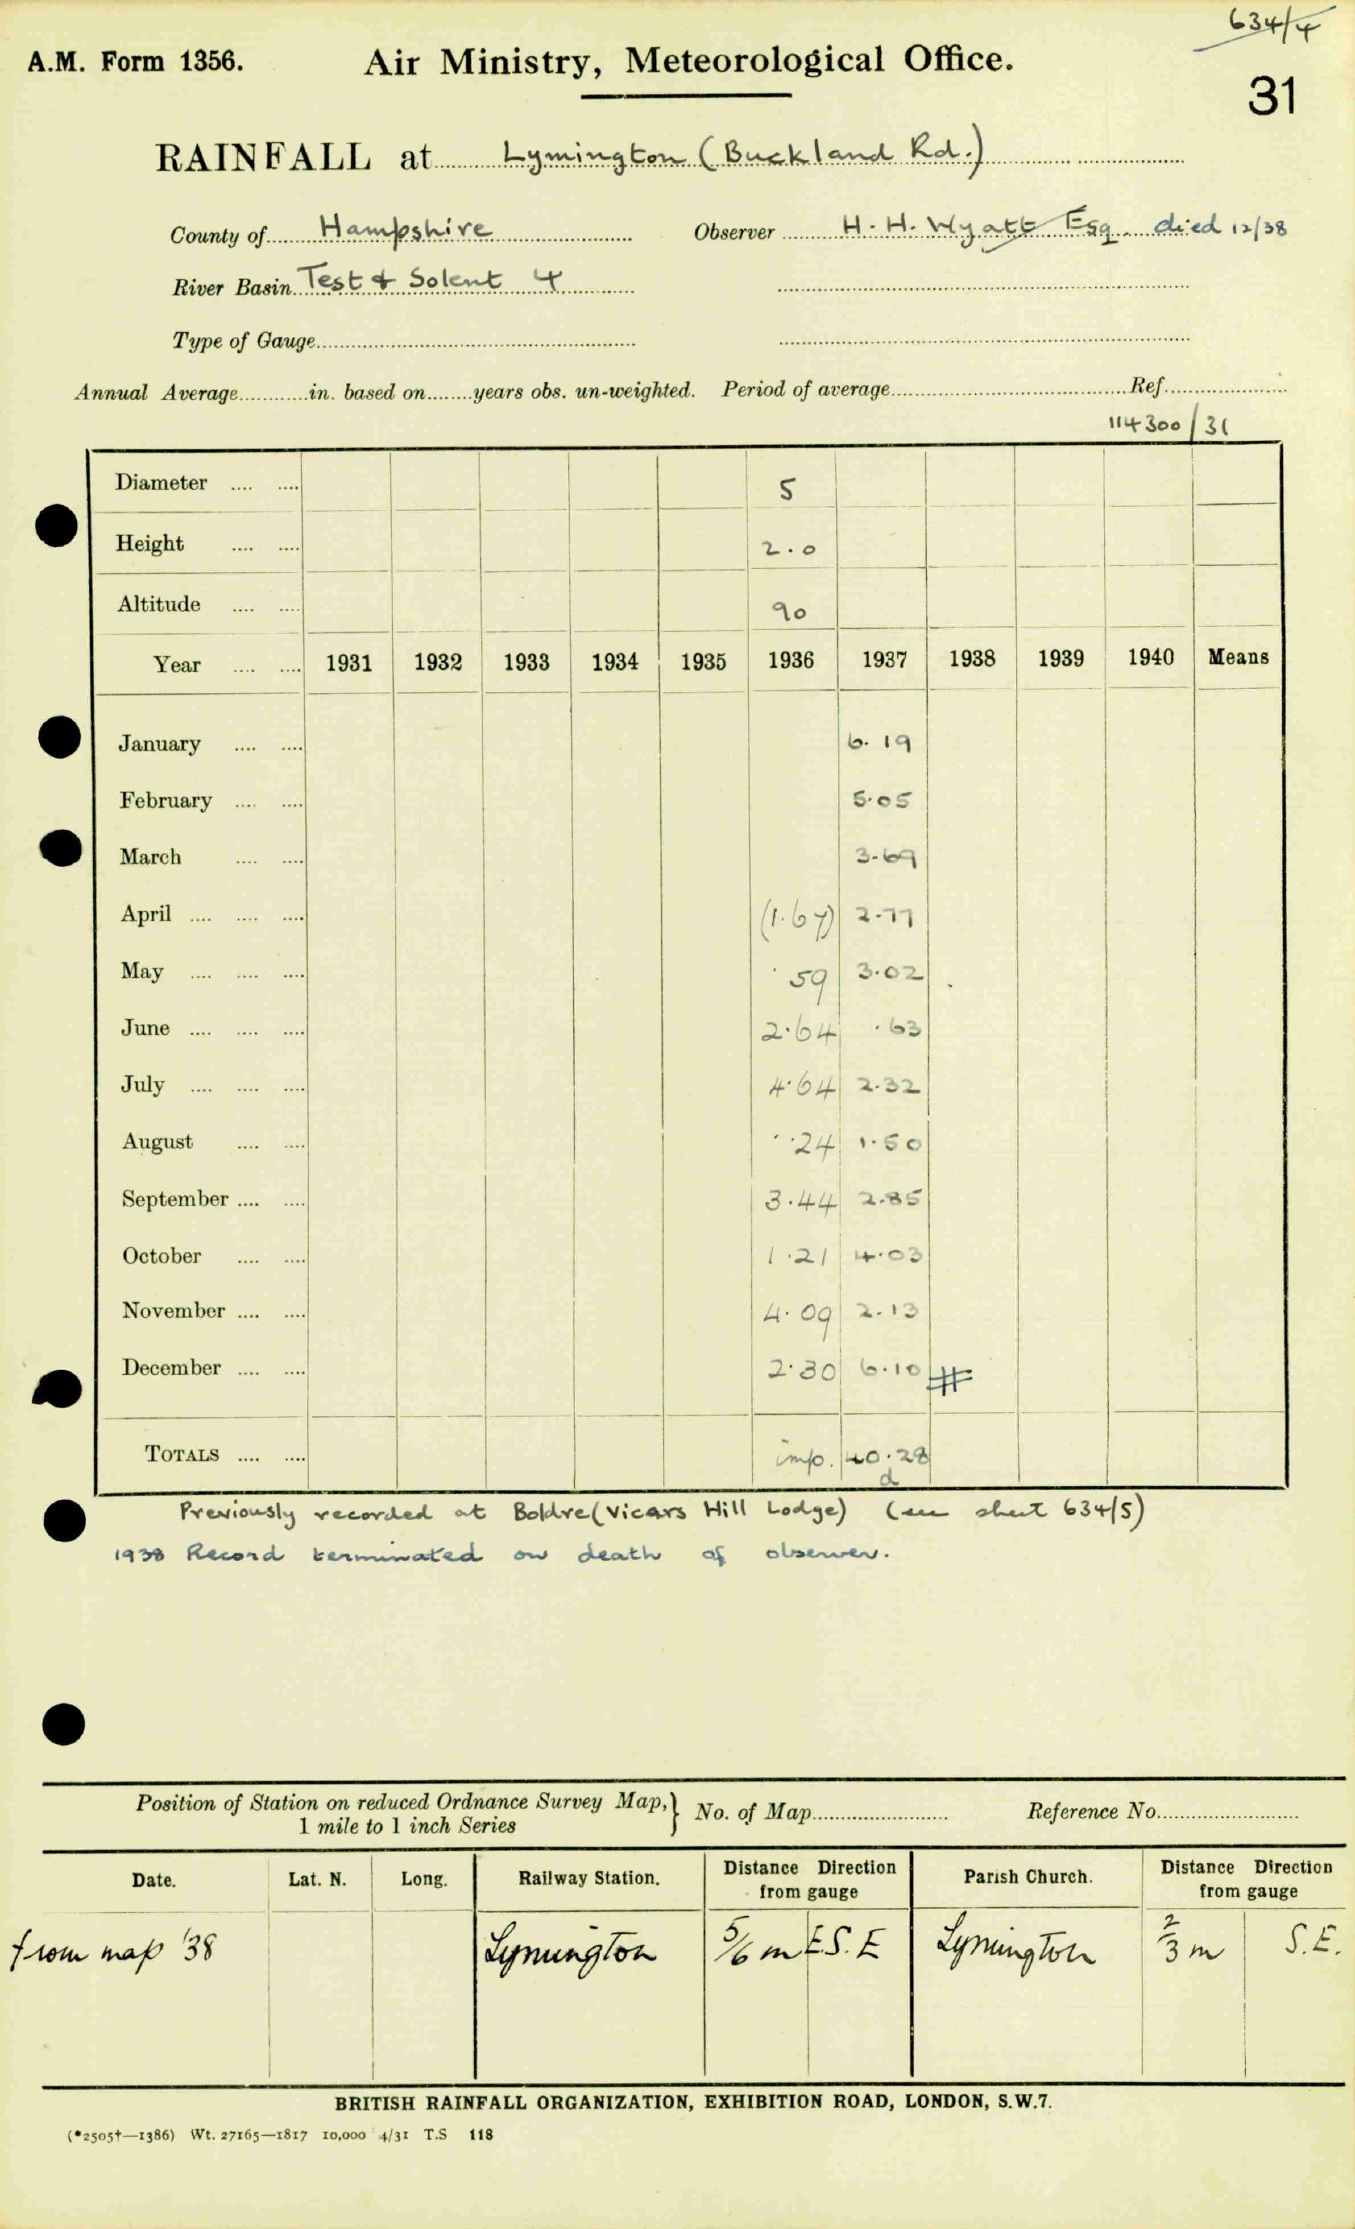 634/4
A.M. Form 1356. Air Ministry, Meteorological Office.
31
RAINFALL at Lymington (Buckland Rd.)
County of Hampshire Observer H. H. Wyatt Esq. died 12/38
River Basin Test & Solent 4
Type of Gauge
Annual Average in. based on years obs. un-weighted. Period of average Ref.
114300/31
Diameter 5
Height 2.0
Altitude 90
Year 1931 1932 1933 1934 1935 1936 1937 1938 1939 1940 Means
January 6.19
February 5.05
March 3.69
April (1.67) 2.77
May .59 3.02
June 2.64 .63
July 4.64 2.32
August .24 1.50
September 3.44 2.85
October 1.21 4.03
November 4.09 2.13
December 2.30 6.10 #
TOTALS imp. 40.28
d
Previously recorded at Boldre (Vicars Hill Lodge) (see sheet 634/5)
1938 Record terminated on death of observer.
Position of Station on reduced Ordnance Survey Map, } No. of Map Reference No.
1 mile to 1 inch Series
Date. Lat. N. Long. Railway Station. Distance Direction from gauge Parish Church. Distance Direction from gauge
from map '38 Lymington 5/6 m E.S.E Lymington 2/3 m S.E.
BRITISH RAINFALL ORGANIZATION, EXHIBITION ROAD, LONDON, S.W.7.
(*2505†—1386) Wt. 27165—1817 10,000 4/31 T.S 118